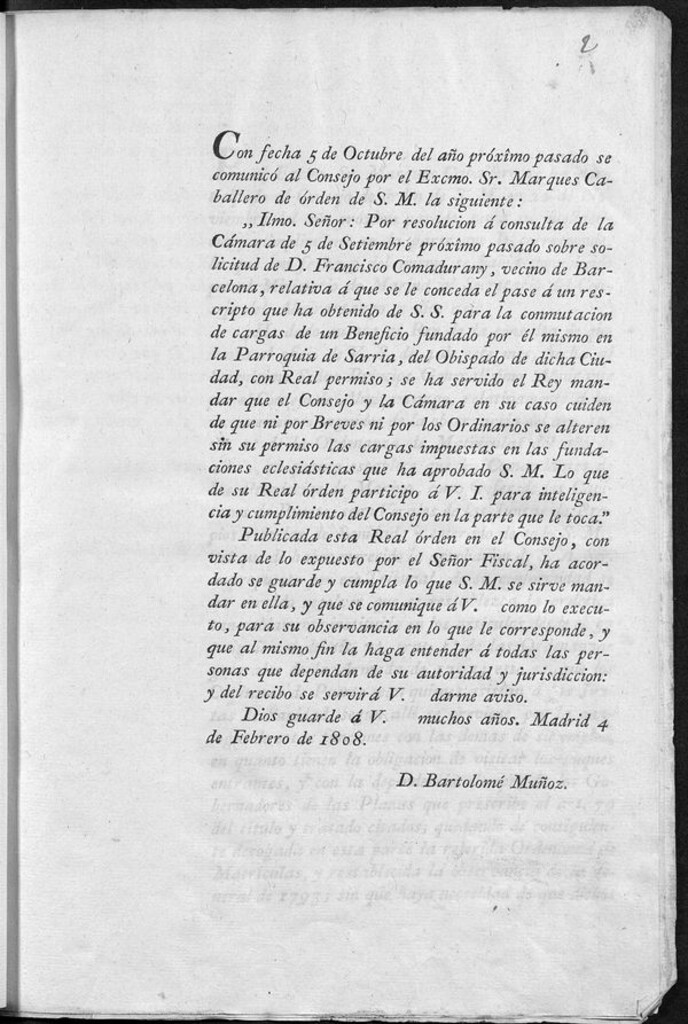 2
Con fecha 5 de Octubre del año próxîmo pasado se
comunicó al Consejo por el Excmo. Sr. Marques Ca-
ballero de órden de S. M. la siguiente:
„Ilmo. Señor: Por resolucion á consulta de la
Cámara de 5 de Setiembre próxîmo pasado sobre so-
licitud de D. Francisco Comadurany, vecino de Bar-
celona, relativa á que se le conceda el pase á un res-
cripto que ha obtenido de S. S. para la conmutacion
de cargas de un Beneficio fundado por él mismo en
la Parroquia de Sarria, del Obispado de dicha Ciu-
dad, con Real permiso; se ha servido el Rey man-
dar que el Consejo y la Cámara en su caso cuiden
de que ni por Breves ni por los Ordinarios se alteren
sin su permiso las cargas impuestas en las funda-
ciones eclesiásticas que ha aprobado S. M. Lo que
de su Real órden participo á V. I. para inteligen-
cia y cumplimiento del Consejo en la parte que le toca.”
Publicada esta Real órden en el Consejo, con
vista de lo expuesto por el Señor Fiscal, ha acor-
dado se guarde y cumpla lo que S. M. se sirve man-
dar en ella, y que se comunique á V. como lo execu-
to, para su observancia en lo que le corresponde, y
que al mismo fin la haga entender á todas las per-
sonas que dependan de su autoridad y jurisdiccion:
y del recibo se servirá V. darme aviso.
Dios guarde á V. muchos años. Madrid 4
de Febrero de 1808.
D. Bartolomé Muñoz.